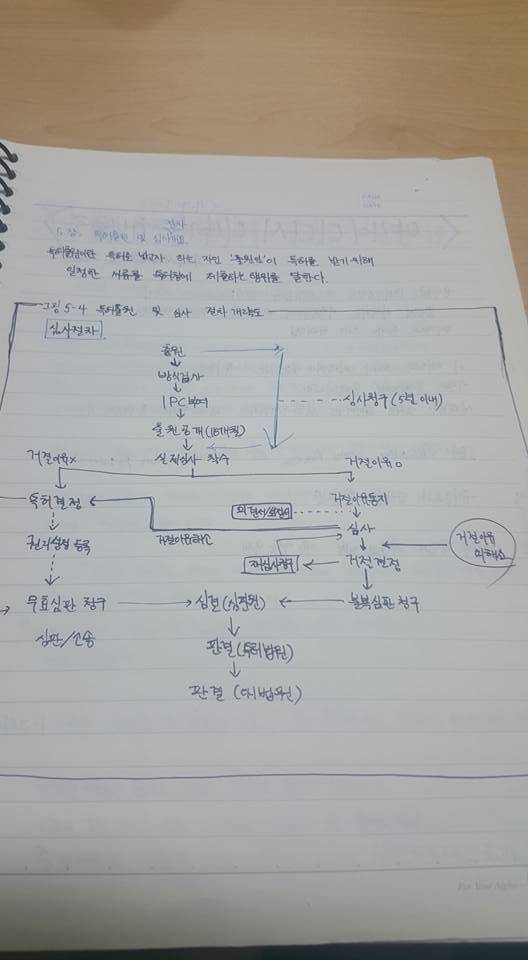 절차
5장. 특허출원 및 심사개요
특허출원이란 특허를 받고자 하는 자인 '출원인'이 특허를 받기 위해
일정한 서류를 특허청에 제출하는 행위를 말한다.
그림 5-4 특허출원 및 심사 절차 개략도
심사절차
출원
방식심사
IPC부여
심사청구 (5년 이내)
출원공개 (18개월)
거절이유x 실체심사 착수 거절이유o
특허결정 거절이유통지
의견서/보정서
권리설정 등록 거절이유해소 심사 거절이유
미해소
재심사청구 거절결정
무효심판 청구 심결(심판원) 불복심판 청구
심판/소송 판결(특허법원)
판결 (대법원)